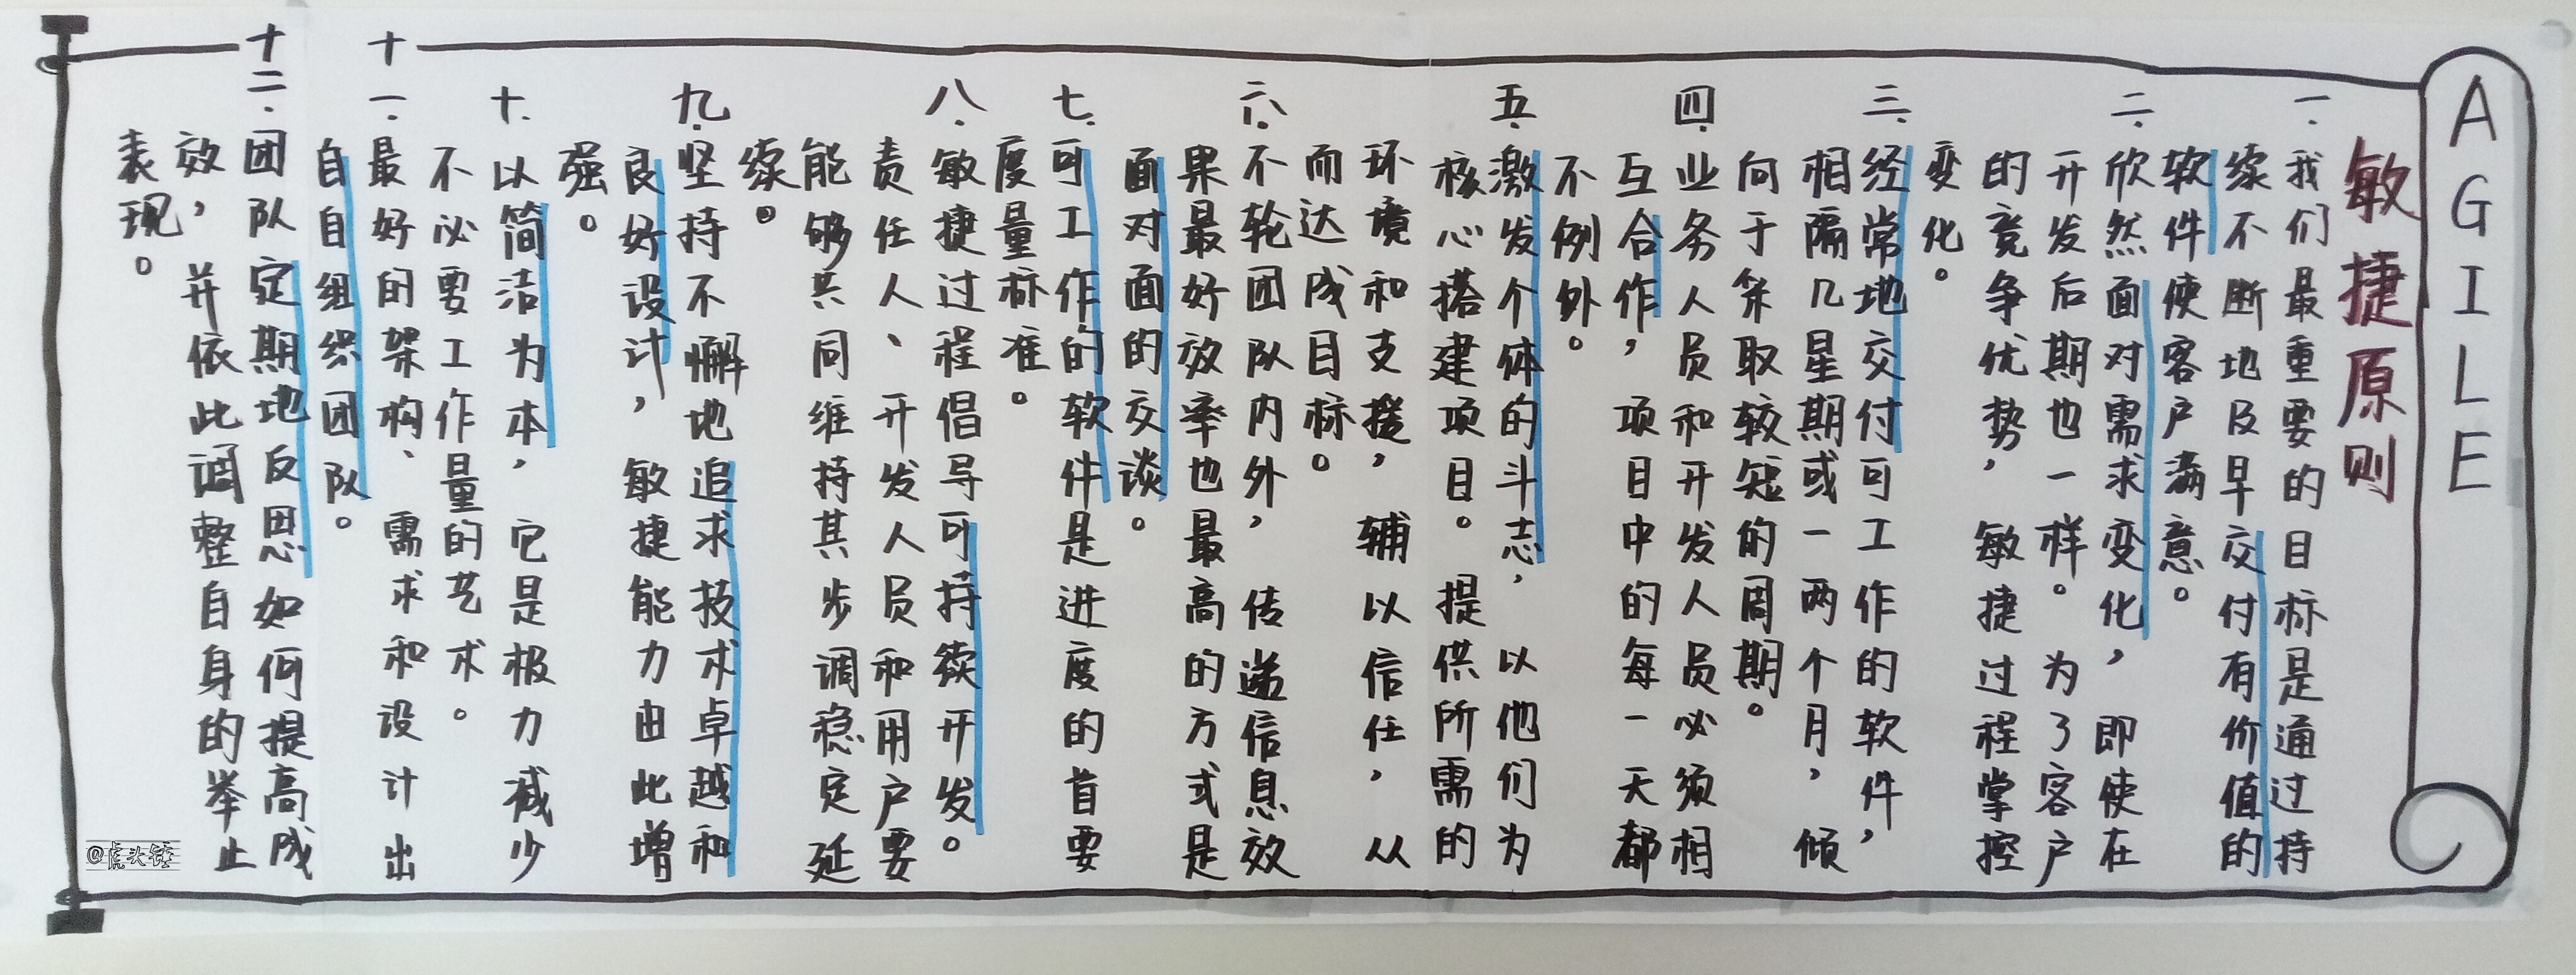 AGILE
敏捷原则
一.我们最重要的目标是通过持
续不断地及早交付有价值的
软件使客户满意。
二.欣然面对需求变化，即使在
开发后期也一样。为了客户
的竞争优势，敏捷过程掌控
变化。
三.经常地交付可工作的软件，
相隔几星期或一两个月，倾
向于采取较短的周期。
四.业务人员和开发人员必须相
互合作，项目中的每一天都
不例外。
五.激发个体的斗志，以他们为
核心搭建项目。提供所需的
环境和支援，辅以信任，从
而达成目标。
六.不轮团队内外，传递信息效
果最好效率也最高的方式是
面对面的交谈。
七.可工作的软件是进度的首要
度量标准。
八.敏捷过程倡导可持续开发。
责任人、开发人员和用户要
能够共同维持其步调稳定延
续。
九.坚持不懈地追求技术卓越和
良好设计，敏捷能力由此增
强。
十.以简洁为本，它是极力减少
不必要工作量的艺术。
十一.最好的架构、需求和设计出
自自组织团队。
十二.团队定期地反思如何提高成
效，并依此调整自身的举止
表现。
@虎头锤